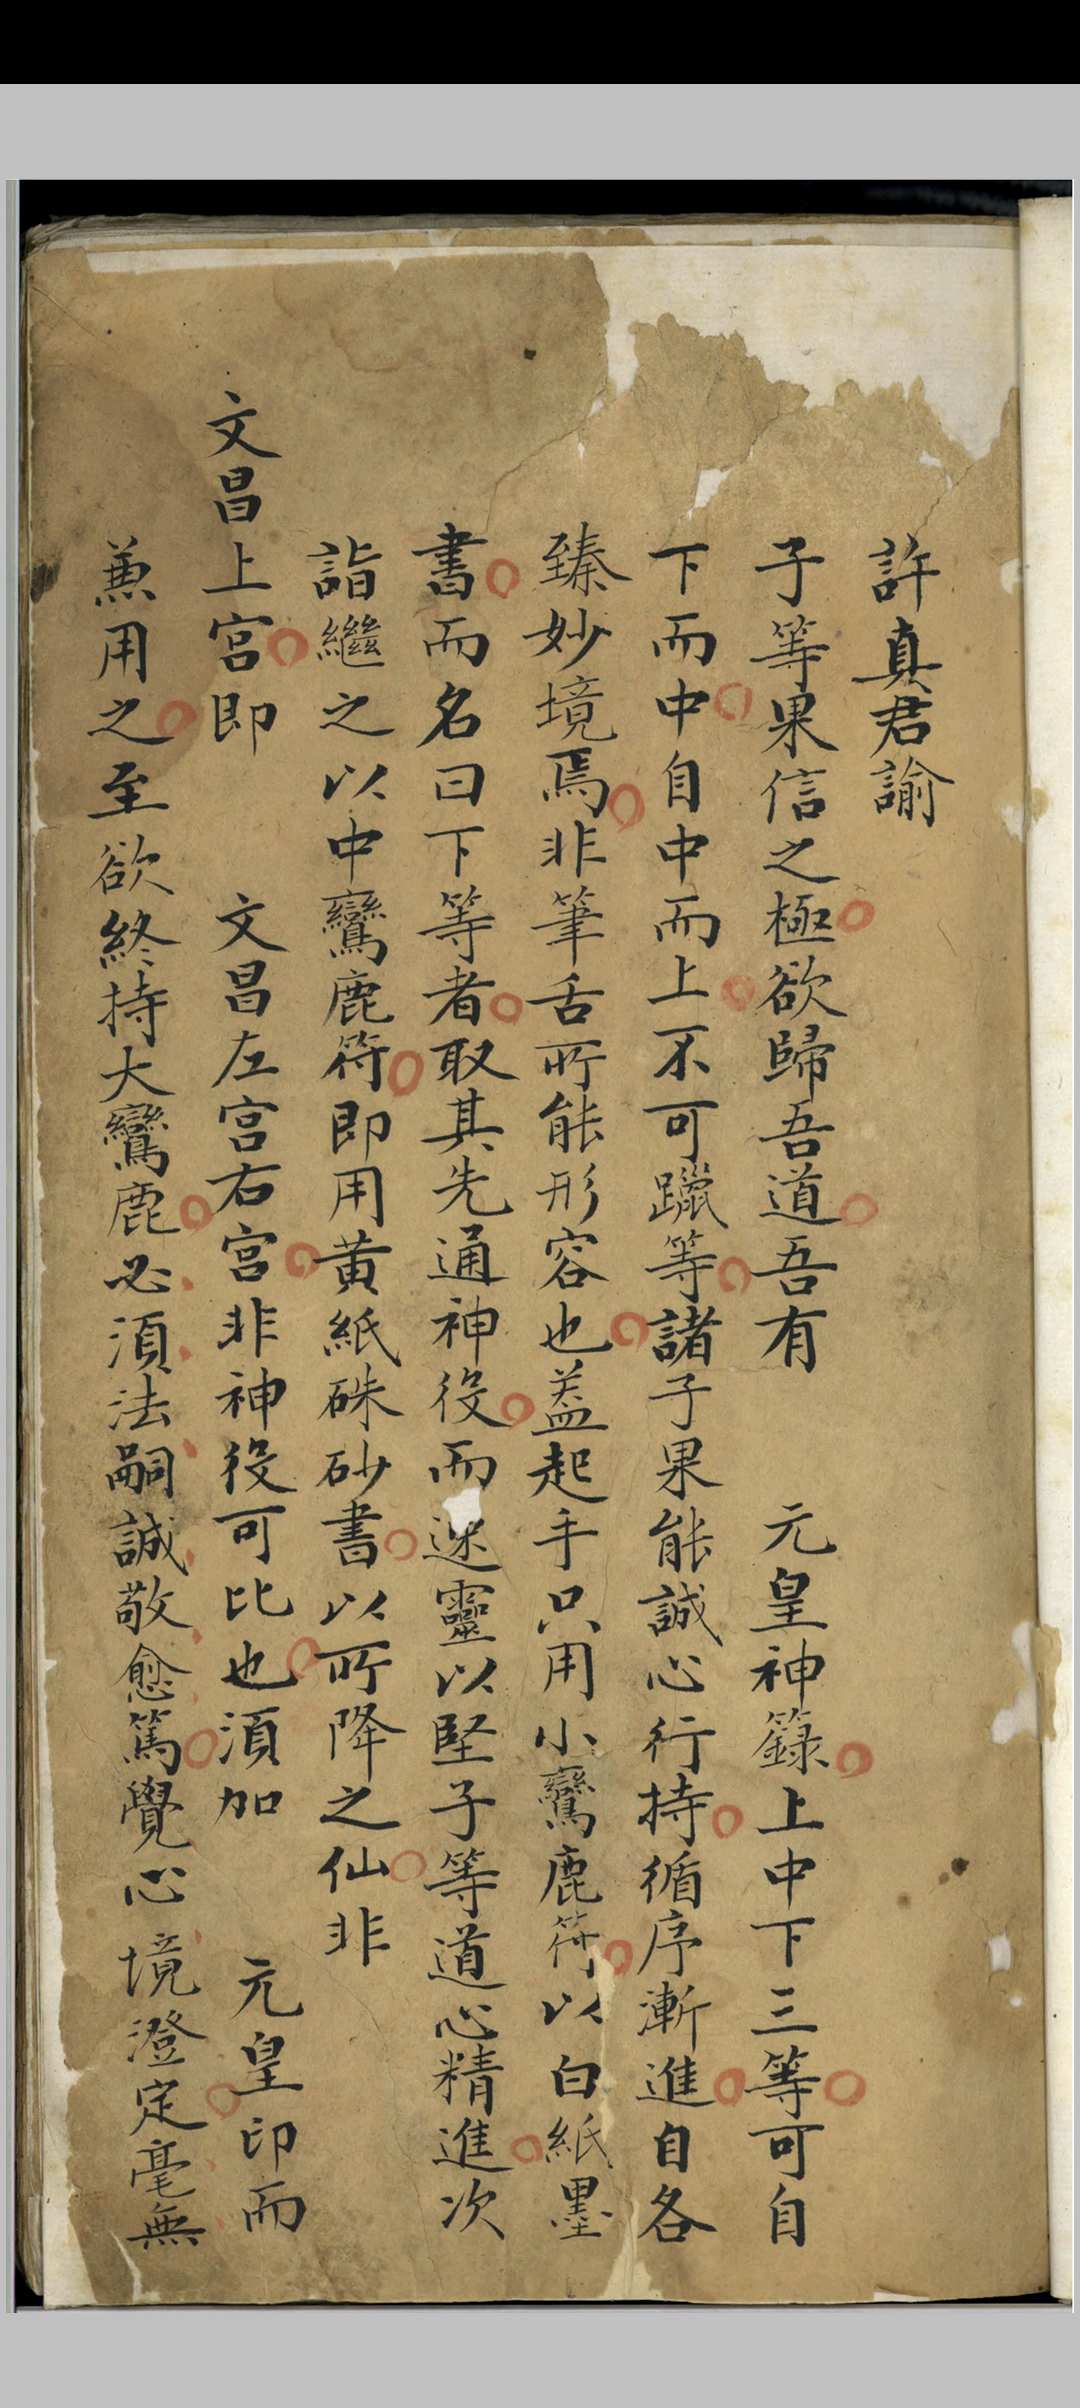 許真君諭
子等果信之極欲歸吾道吾有 元皇神籙上中下三等可自
下而中自中而上不可躐等諸子果能誠心行持循序漸進自各
臻妙境焉非筆舌所能形容也蓋起手只用小鸞鹿符以白紙墨
書而名曰下等者取其先通神役而迷靈以堅子等道心精進次
詣繼之以中鸞鹿符即用黃紙硃砂書以所降之仙非
文昌上宮即 文昌左宮右宮非神役可比也須加 元皇印而
兼用之至欲終持大鸞鹿必須法嗣誠敬愈篤覺心境澄定毫無